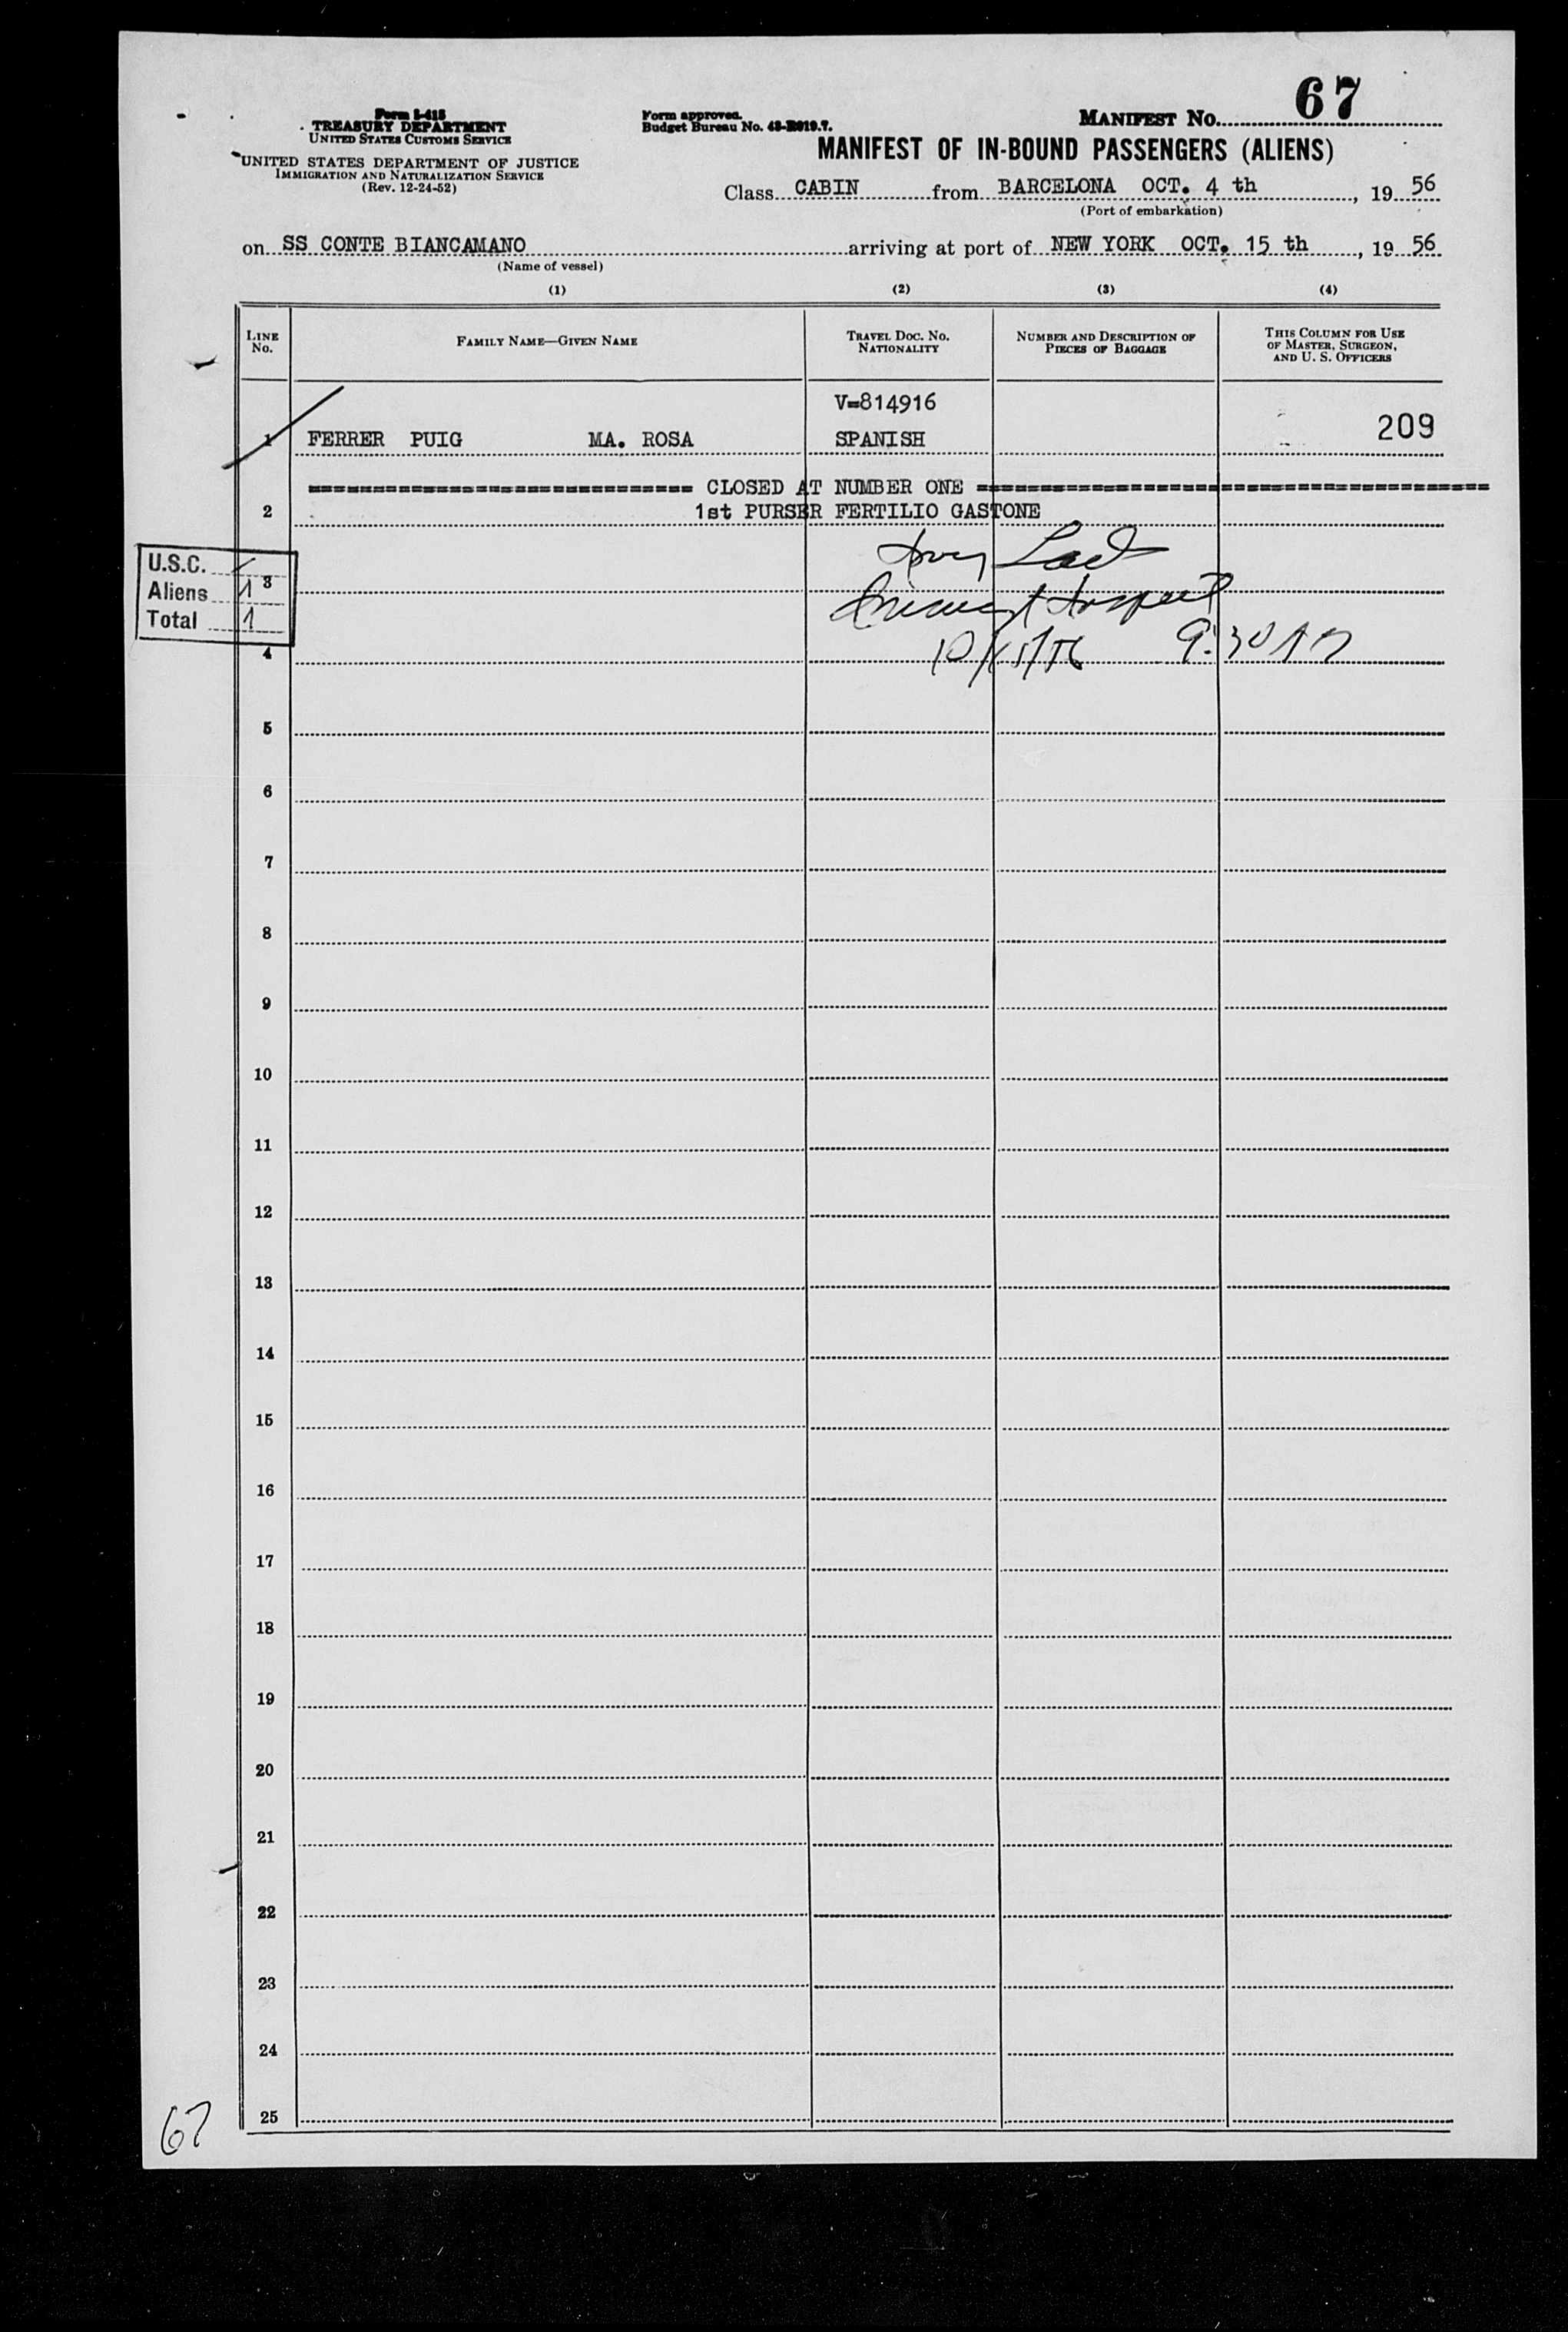 Form I-418
TREASURY DEPARTMENT
UNITED STATES CUSTOMS SERVICE
UNITED STATES DEPARTMENT OF JUSTICE
IMMIGRATION AND NATURALIZATION SERVICE
(Rev. 12-24-52)
Form approved.
Budget Bureau No. 43-R019.7.
MANIFEST No. 67
MANIFEST OF IN-BOUND PASSENGERS (ALIENS)
Class CABIN from BARCELONA OCT. 4 th, 19 56
(Port of embarkation)
on SS CONTE BIANCAMANO arriving at port of NEW YORK OCT. 15 th, 19 56
(Name of vessel)
(1) (2) (3) (4)
LINE No. FAMILY NAME—GIVEN NAME TRAVEL DOC. No. NATIONALITY NUMBER AND DESCRIPTION OF PIECES OF BAGGAGE THIS COLUMN FOR USE OF MASTER, SURGEON, AND U. S. OFFICERS
V=814916
1 FERRER PUIG MA. ROSA SPANISH 209
============================== CLOSED AT NUMBER ONE ========================================
2 1st PURSER FERTILIO GASTONE
U.S.C.
Aliens 1
Total 1
3
4 10/15/56 9:30 AM
5
6
7
8
9
10
11
12
13
14
15
16
17
18
19
20
21
22
23
24
25
67